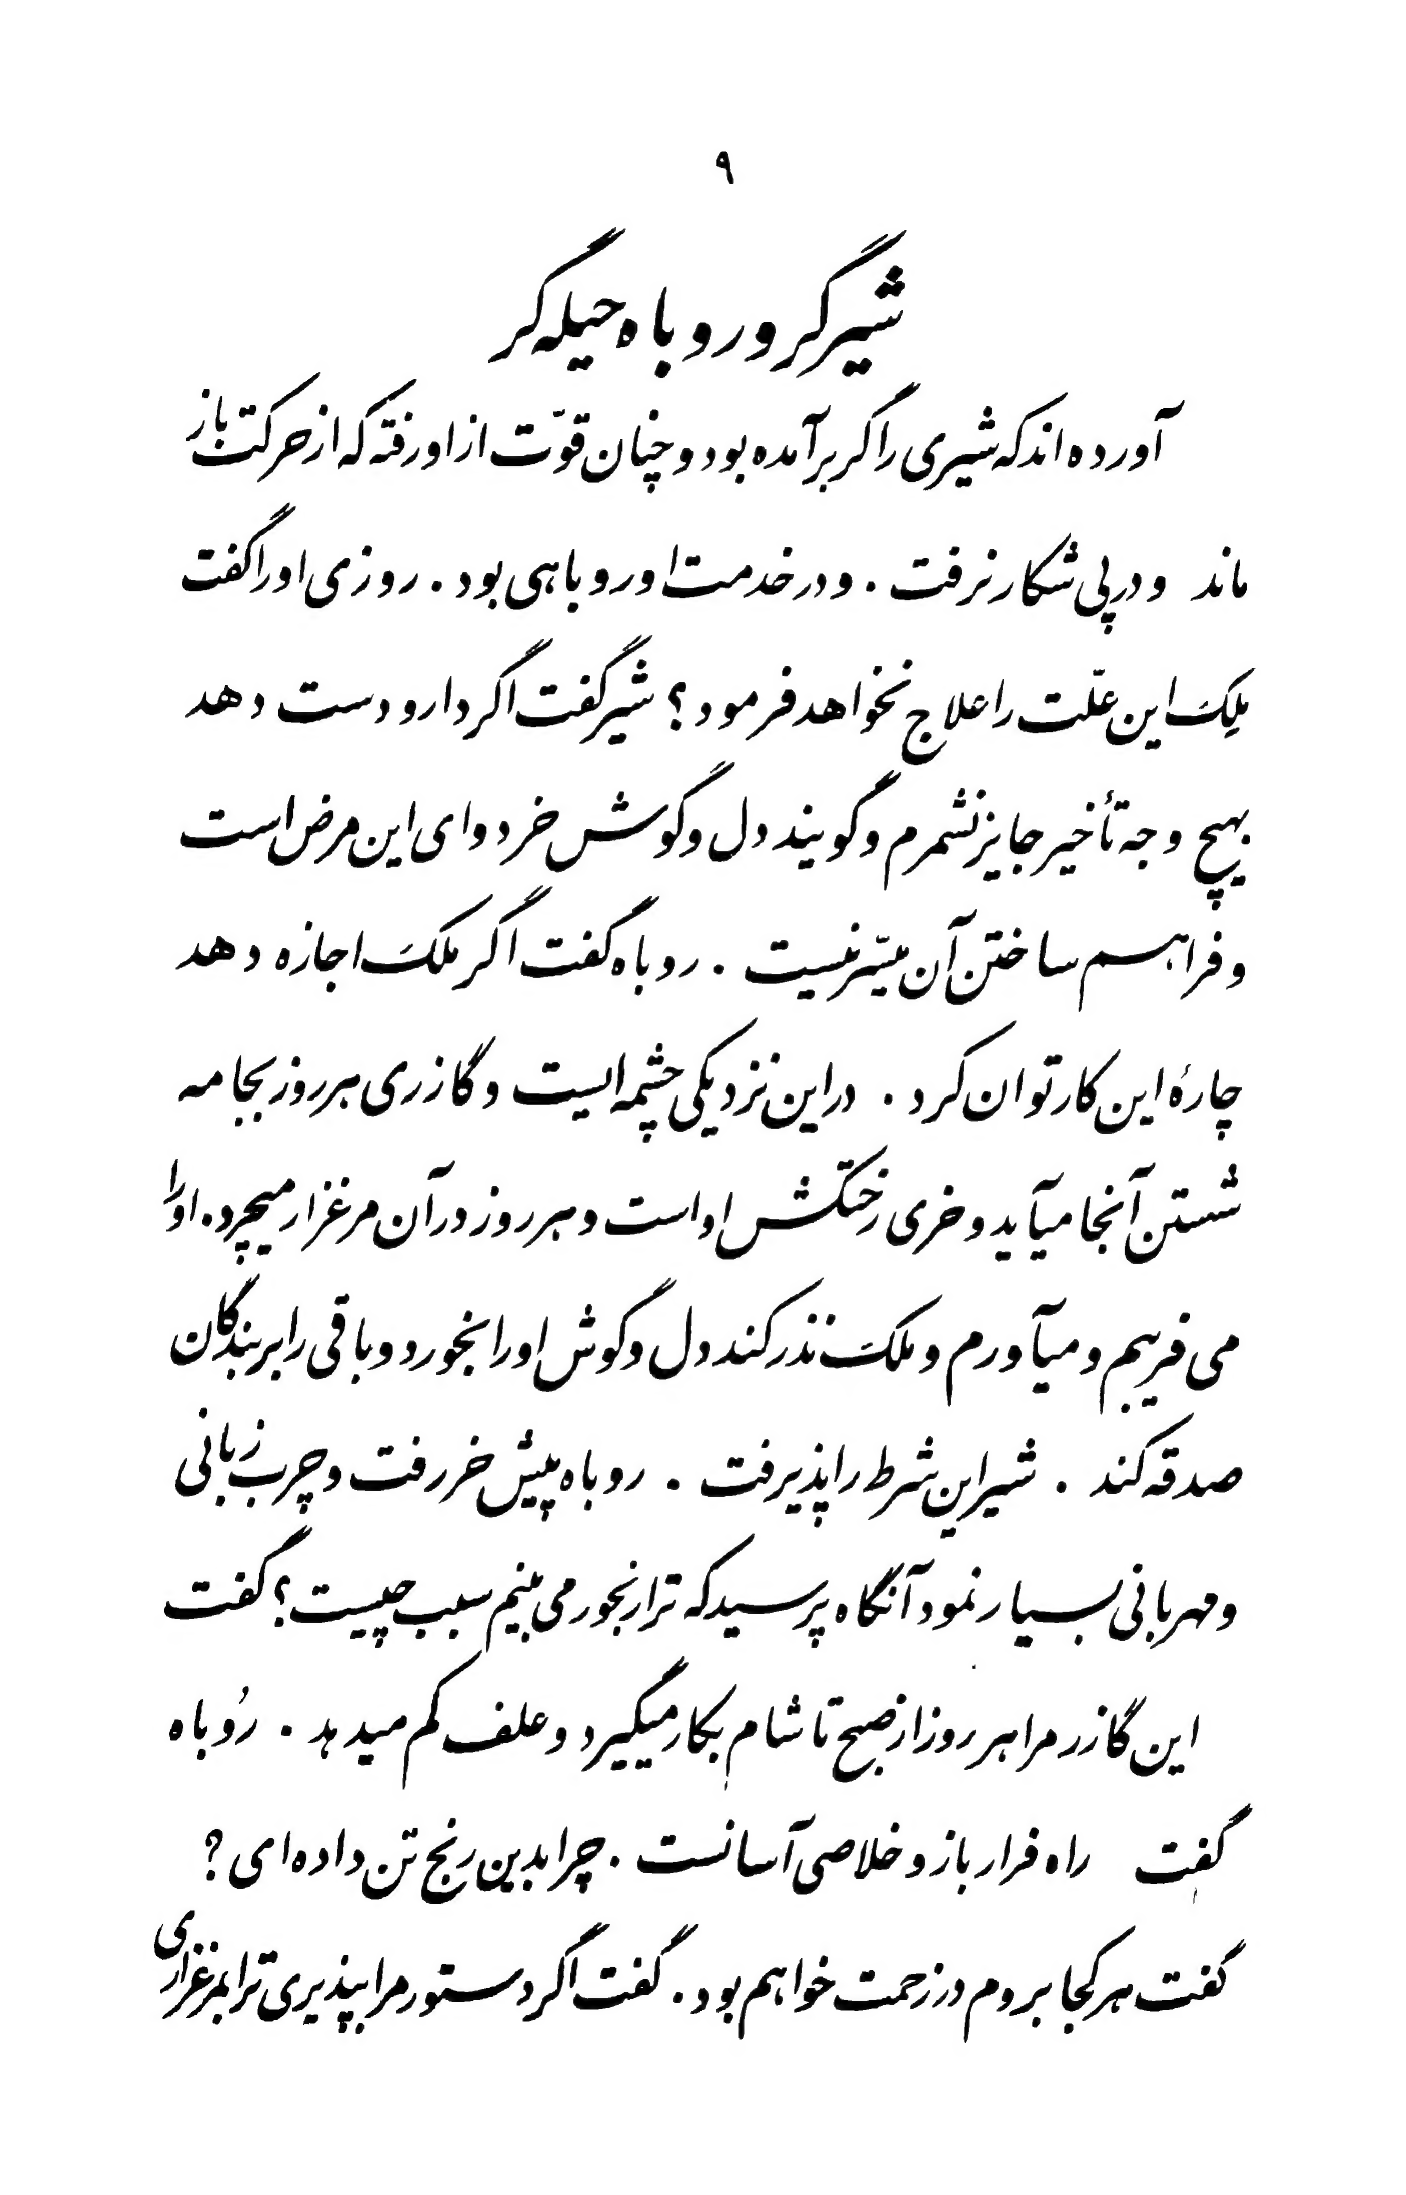 ۹
شیر گر و روباه حیله گر
آورده اند که شیری را گر برآمده بود و چنان قوّت از او رفته که از حرکت باز
ماند و در پی شکار نرفت . و در خدمت او روباهی بود . روزی او را گفت
ملِک این علّت را علاج نخواهد فرمود ؟ شیر گفت اگر دارو دست دهد
بهیچ وجه تأخیر جایز نشمرم و گویند دل و گوش خر دوای این مرض است
و فراهم ساختن آن میسّر نیست . روباه گفت اگر ملک اجازه دهد
چارهٔ این کار توان کرد . در این نزدیکی چشمه ایست و گازری هر روز بجامه
شستن آنجا میآید و خری رختکش او است و هر روز در آن مرغزار میچرد . او را
می فریبم و میآورم و ملک نذر کند دل و گوش او را بخورد و باقی را بر بندگان
صدقه کند . شیر این شرط را پذیرفت . روباه پیش خر رفت و چرب زبانی
و مهربانی بسیار نمود آنگاه پرسید که ترا رنجور می بینم سبب چیست ؟ گفت
این گازر مرا هر روز از صبح تا شام بکار میگیرد و علف کم میدهد . رُوباه
گفت راه فرار باز و خلاصی آسانست . چرا بدین رنج تن داده ای ؟
گفت هر کجا بروم در زحمت خواهم بود . گفت اگر دستور مرا بپذیری ترا بمرغزاری